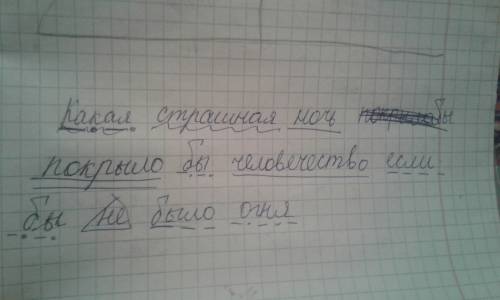 Какая страшная ночь бы
покрыло бы человечество если
бы не было огня